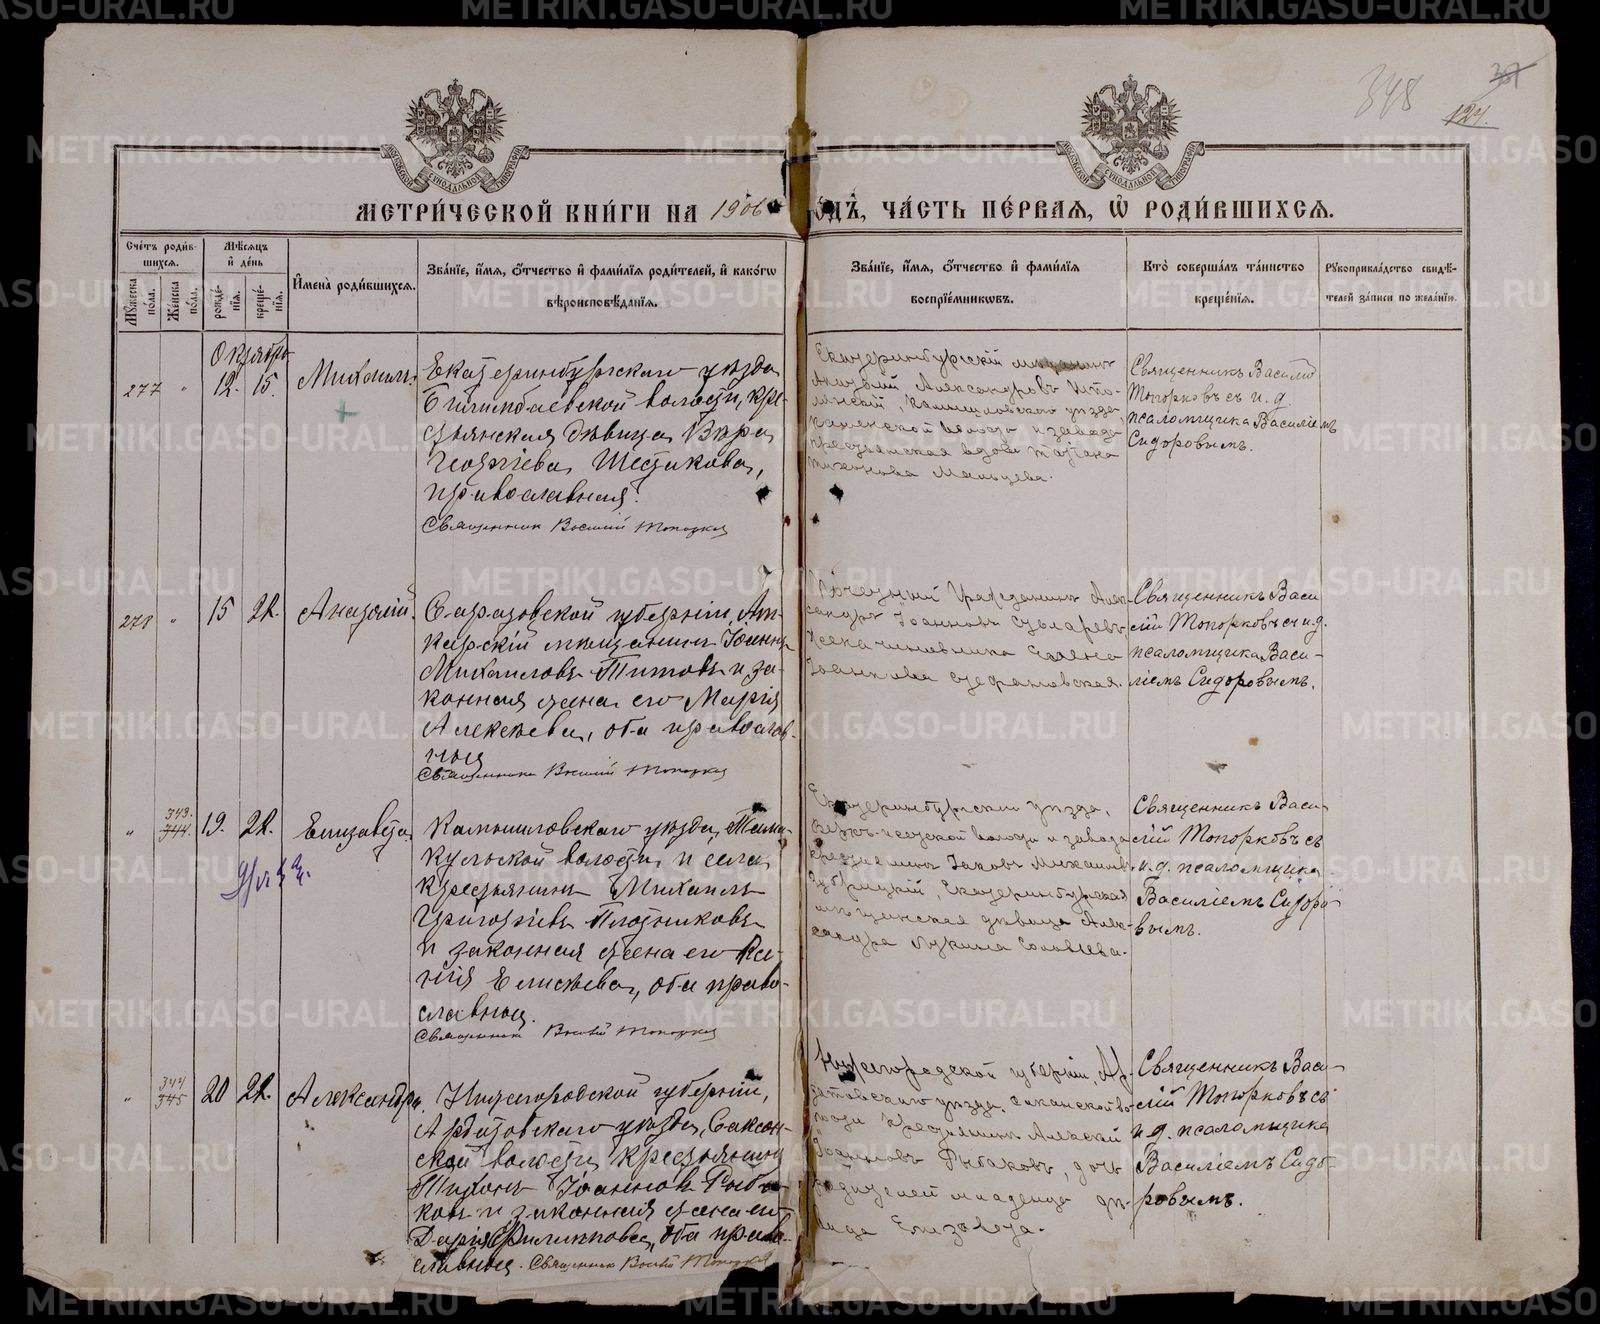 348
124.
МЕТРИ́ЧЕСКОЙ КНИ́ГИ НА 1906 ГО́ДЪ, ЧА́СТЬ ПЕ́РВАЯ, Ѡ҆ РОДИ́ВШИХСЯ.
Сче́тъ роди́в-
шихся.
Му́жеска
по́ла.
Же́нска
по́ла.
Мѣ́сяцъ
и҆ де́нь
рожде́-
нія.
креще́-
нія.
И҆мена̀ роди́вшихся.
Зва́нїе, и҆́мя, ѻ҆́тчество и҆ фами́лїя роди́телей, и҆ како́гѡ
вѣроисповѣ́данїя.
Зва́нїе, и҆́мя, ѻ҆́тчество и҆ фами́лїя
воспрїе́мникѡвъ.
Кто̀ соверша́лъ та́инство
креще́нїя.
Рꙋкоприкла́дство свидѣ́-
телей за́писи по жела́нїю.
Октябрь
277 " 12. 15. Михаилъ
Екатеринбургскаго уѣзда
Билимбаевской волости, кре-
стьянская дѣвица Вѣра
Георгіева Шестакова,
православная.
Священник Василій Топорков
Екатеринбургскій мѣщанин
Анатолій Александровъ
Камышловскаго уѣзда,
Каменской волости и завода
крестьянская вдова Татіана
Тихонова Мальцева.
Священникъ Василій
Топорковъ съ и. д.
псаломщика Василіемъ
Сидоровымъ.
278 " 15 22. Анатолій.
Саратовской губерніи, Ат-
карскій мѣщанинъ Іоаннъ
Михаиловъ Титовъ и за-
конная жена его Марія
Алексѣева, оба православ-
ные
Священникъ Василій Топорков
Почетный Гражданинъ Алек-
сандръ Іоанновъ
чиновника Елена
Іоаннова Стефановская.
Священникъ Васи
лій Топорковъ съ и.д.
псаломщика Васи-
ліемъ Сидоровымъ.
" 343. 344. 19. 22. Елизавета.
Камышловскаго уѣзда, Тама-
кульской волости и села,
крестьянинъ Михаилъ
Григорьевъ Плотниковъ
и законная жена его Ксе-
нія Елисѣева, оба право-
славные.
Священник Василій Топорков
Екатеринбургскаго уѣзда,
Верх-Исетской волости и завода
крестьянинъ Іаковъ Михаиловъ
Екатеринбургская
мѣщанская дѣвица Алек-
сандра Лукина Соловьева.
Священникъ Васи-
лій Топорковъ съ
и.д. псаломщика
Василіемъ Сидоро-
вымъ.
" 344 345 20 22. Александра.
Нижегородской губерніи,
Ардатовскаго уѣзда, Сакан-
ской волости, крестьянинъ
Тихонъ Іоанновъ Рыба-
ков и законная жена его
Дарія Филиппова, оба право-
славные. Священник Василій Топорков
Нижегородской губерніи, Ар-
датовскаго уѣзда, Саканской во-
лости крестьянинъ Алексій
Іоанновъ Рыбаковъ, дочь
родителей младенца дѣ-
вица Елизавета.
Священникъ Васи-
лій Топорковъ съ
и.д. псаломщика
Василіемъ Сидо-
ровымъ.
METRIKI.GASO-URAL.RU